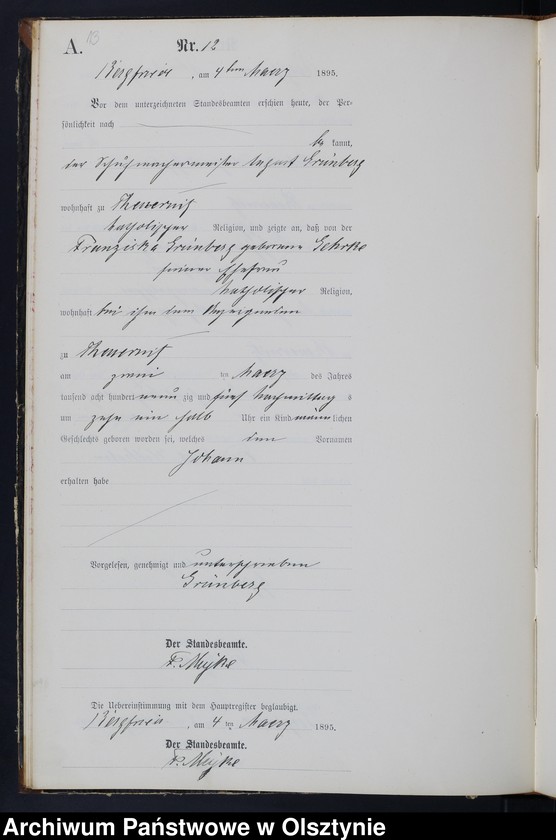 A. 13
Nr. 12
Bergfriede, am 4ten Maerz 1895.
Vor dem unterzeichneten Standesbeamten erschien heute, der Per-
sönlichkeit nach
be kannt,
der Schuhmachermeister August Grünberg
wohnhaft zu Thewernitz
katholischer Religion, und zeigte an, daß von der
Franziska Grünberg geborene Gehrke
seiner Ehefrau
katholischer Religion,
wohnhaft bei ihm dem Anzeigenden
zu Thewernitz
am zwei ten Maerz des Jahres
tausend acht hundert neun zig und fünf Nachmittag s
um zehn ein halb Uhr ein Kind männ lichen
Geschlechts geboren worden sei, welches den Vornamen
Johann
erhalten habe
Vorgelesen, genehmigt und unterschrieben
Grünberg
Der Standesbeamte.
Die Uebereinstimmung mit dem Hauptregister beglaubigt.
Bergfriede, am 4 ten Maerz 1895.
Der Standesbeamte.
Archiwum Państwowe w Olsztynie